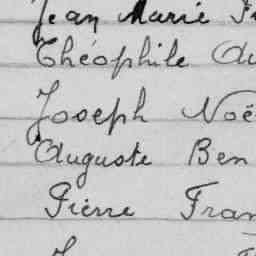 Jean Marie
Théophile
Joseph Noë
Auguste Ben
Pierre Fran